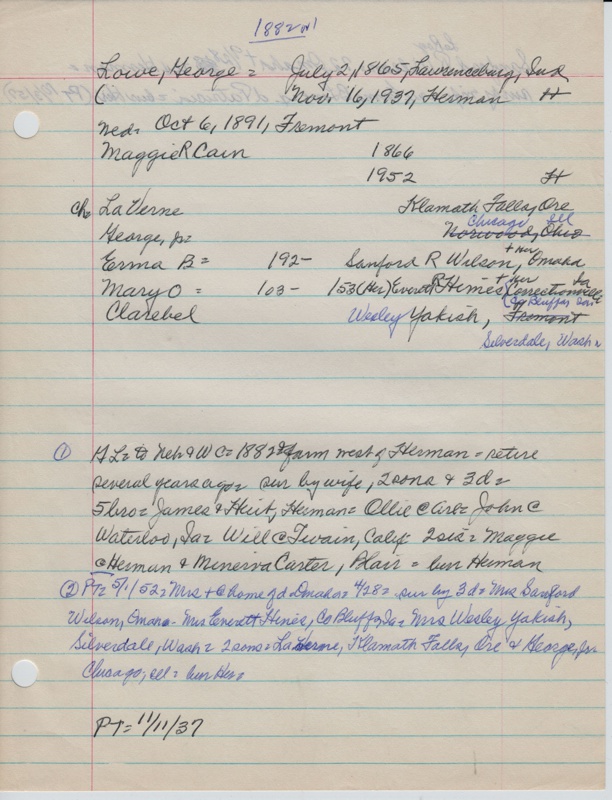 1882 N1
Lowe, George = July 2, 1865, Lawrenceburg, Ind
C Nov. 16, 1937, Herman H
med= Oct 6, 1891, Fremont
Maggie R Cain 1866
1952 H
Ch= LaVerne Klamath Falls, Ore
Chicago Ill
George, Jr= Norwood, Ohio
Erma B= 192- Sanford R Wilson, + nw Omaha
Mary O= 103- 153 (Her) Everett R Hines + nw Correctionville Ia
Co Bluffs,
Clarebel Wesley Yakish, Fremont
Silverdale, Wash=
① to Neb & W C= 1882 & farm west of Herman= retire
several years ago= sur by wife, 2 sons & 3 d=
5 bro= James & Herman= Ollie John C
Waterloo, Ia= Will C Twain, Calif= 2 sis= Maggie
C Herman & Minerva Carter, Blair= bur Herman
② PT= 5/1/52= Mrs + C home of d Omaha= 4/28= sur by 3 d= Mrs Sanford
Wilson, Omaha- Mrs Everett Hines, Co Bluffs, Ia= Mrs Wesley Yakish,
Silverdale, Wash= 2 sons= LaVerne, Klamath Falls, Ore & George, Jr=
Chicago, Ill= bur Her=
PT= 11/11/37